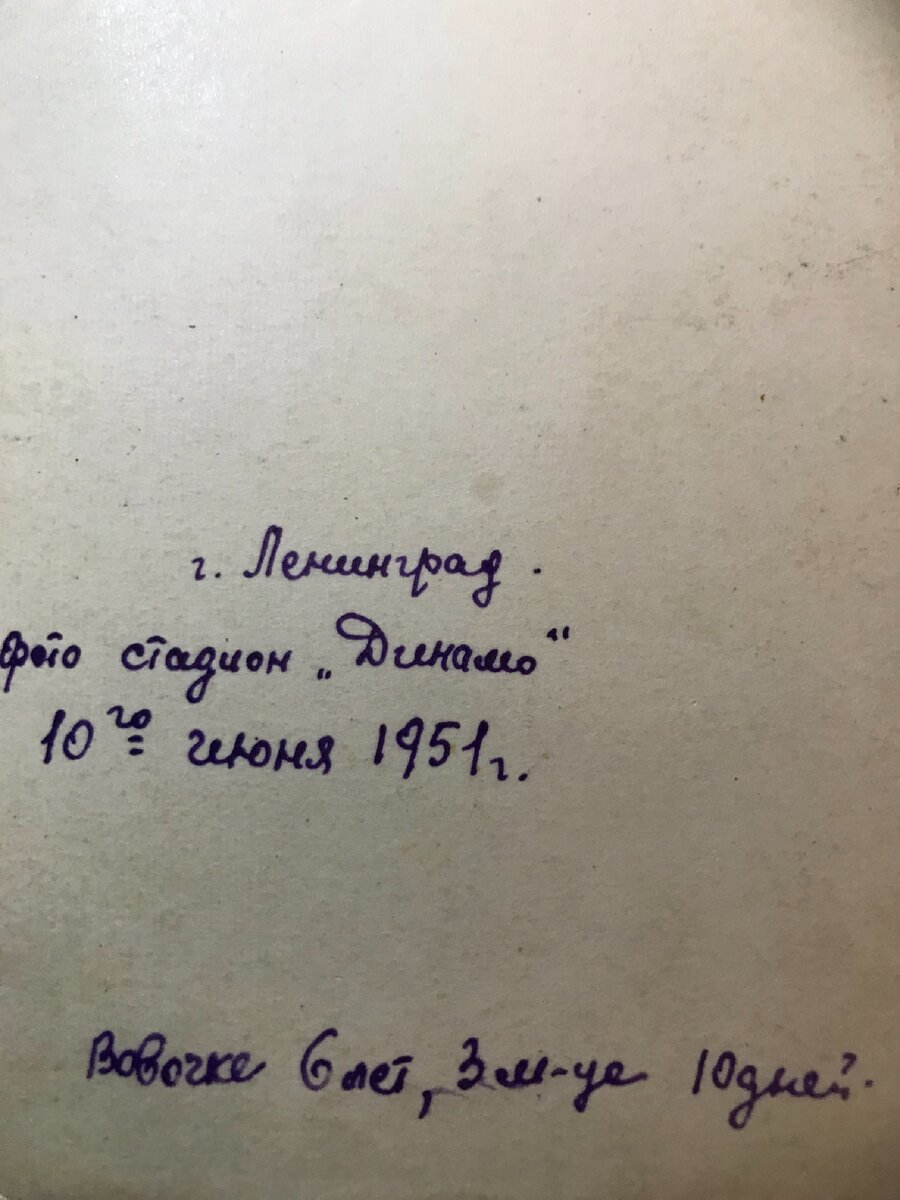 г. Ленинград.
Фото стадион „Динамо“
10го июня 1951 г.
Вовочке 6 лет, 3 м-це 10 дней.